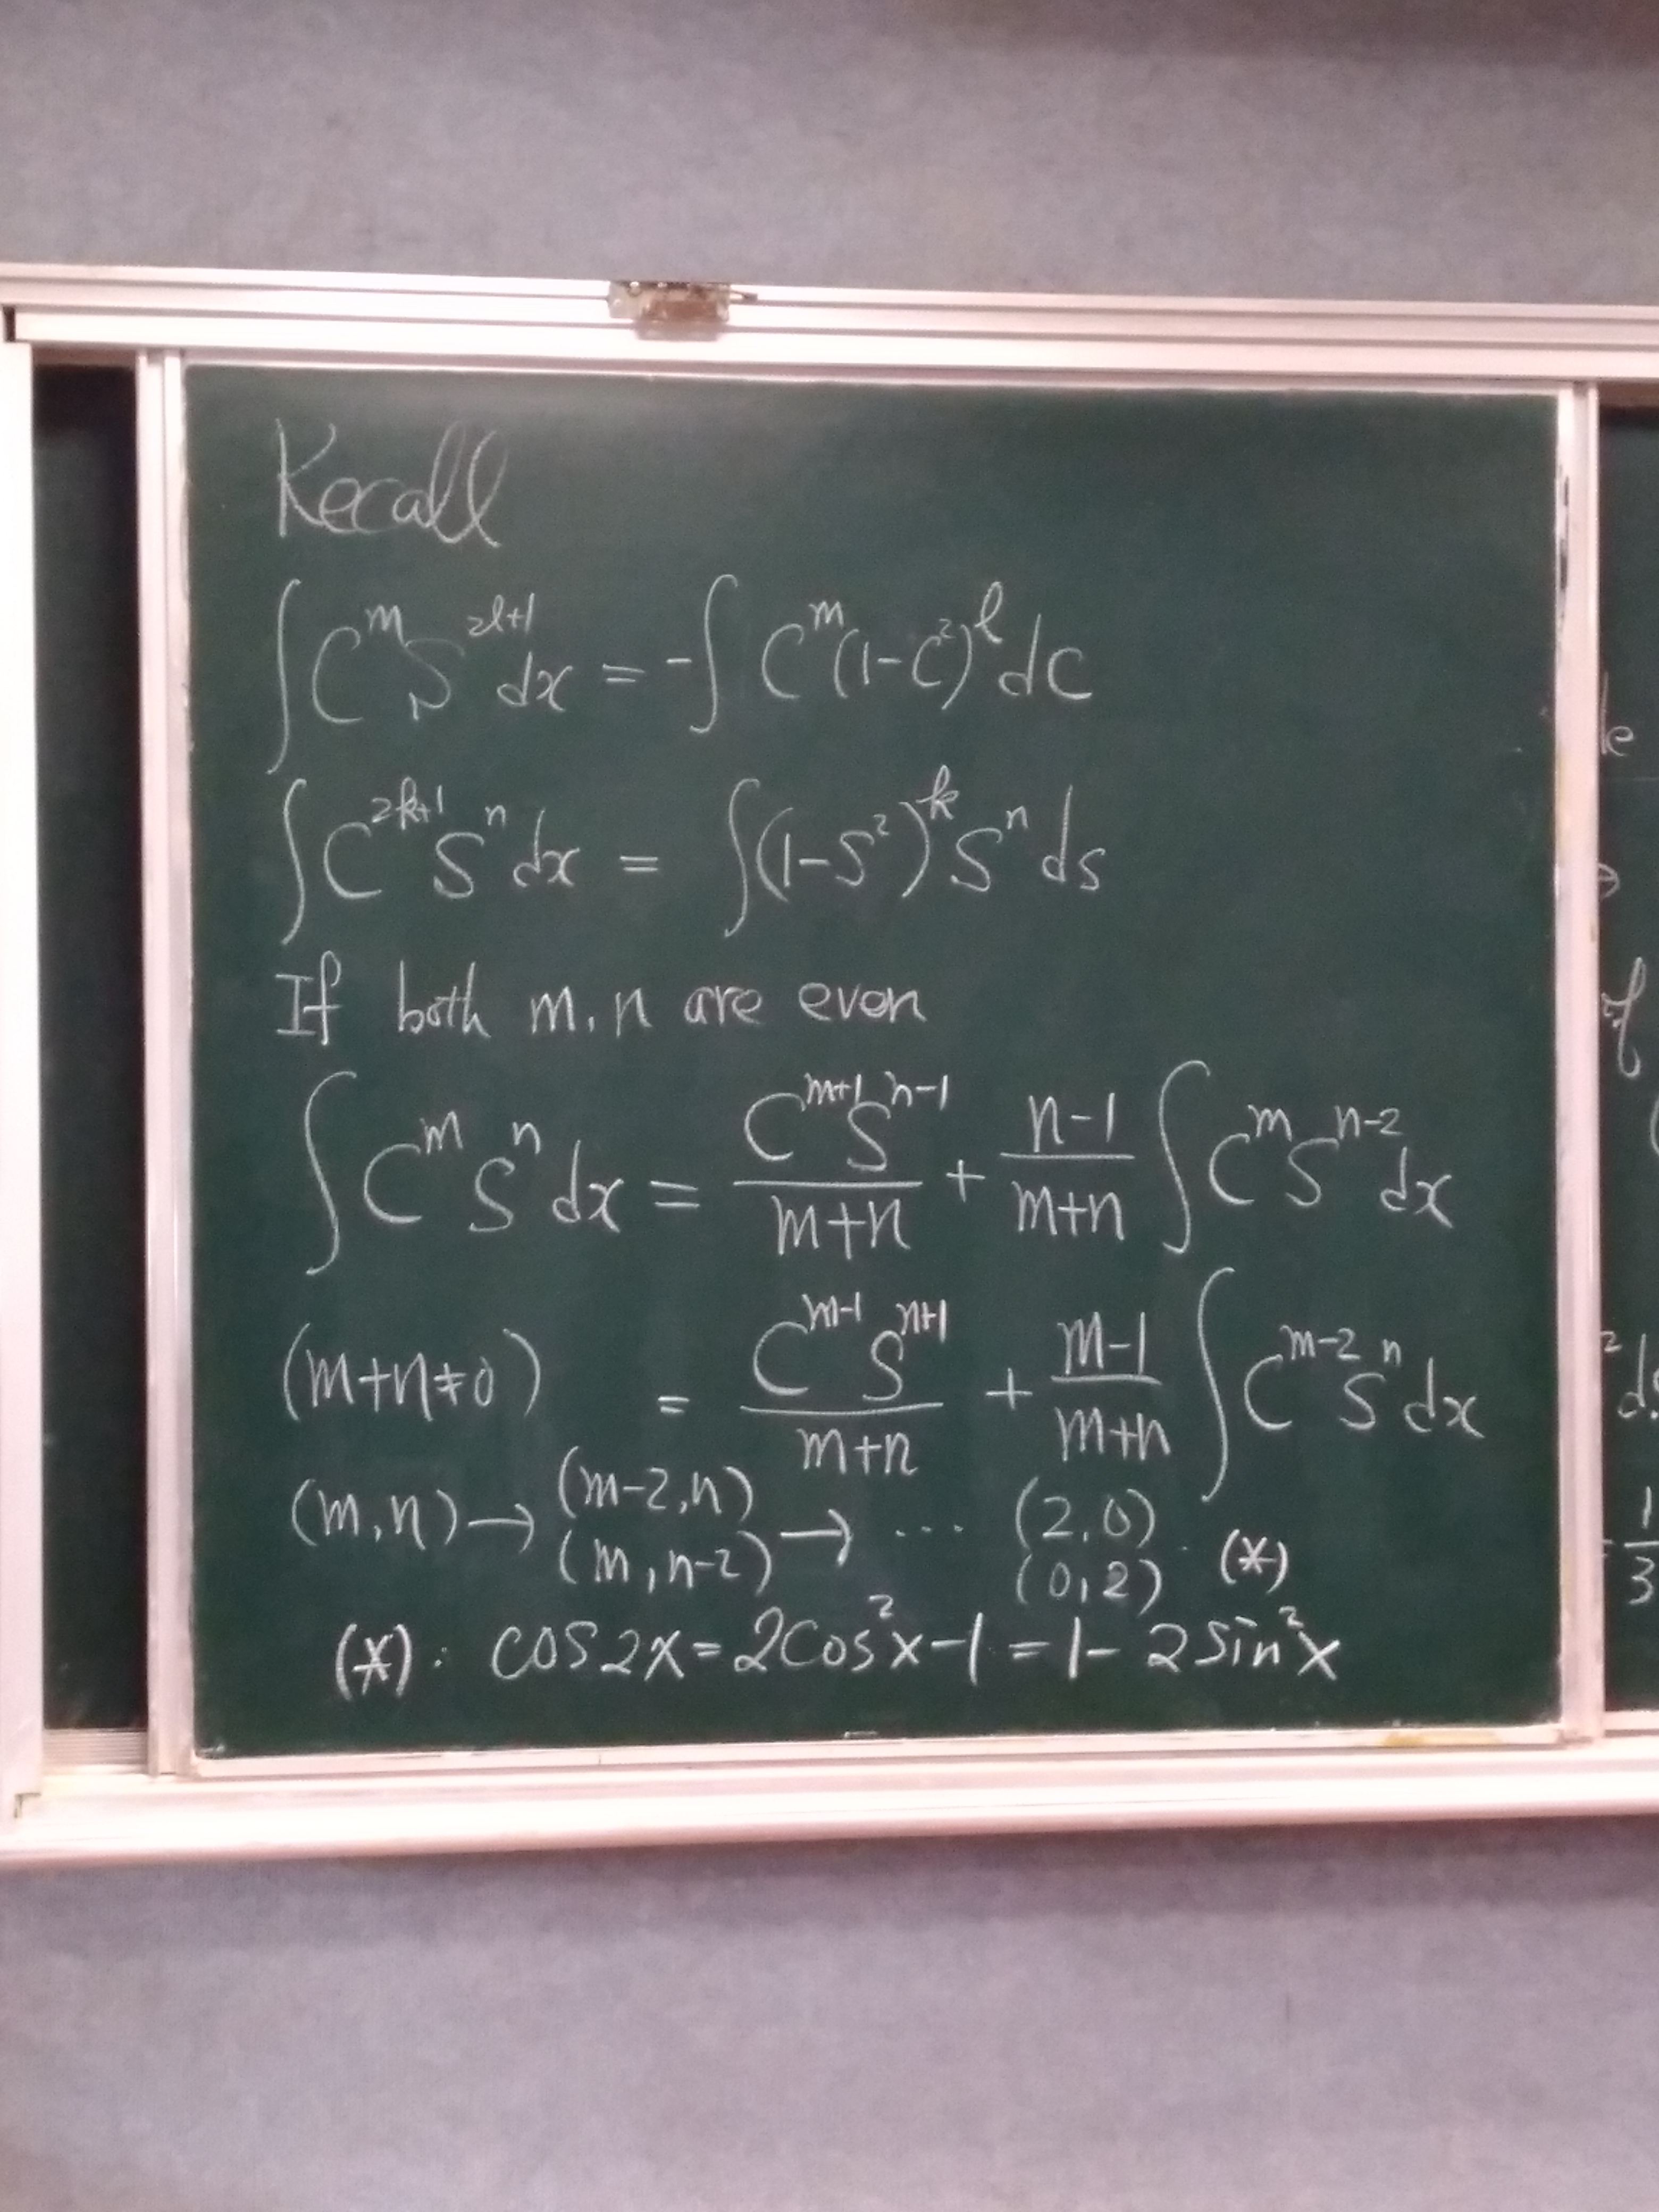 Recall
∫ C^m S^{2l+1} dx = -∫ C^m (1-C^2)^l dC
∫ C^{2k+1} S^n dx = ∫ (1-S^2)^k S^n ds
If both m, n are even
∫ C^m S^n dx = \frac{C^{m+1} S^{n-1}}{m+n} + \frac{n-1}{m+n} ∫ C^m S^{n-2} dx
(m+n≠0) = \frac{C^{m-1} S^{n+1}}{m+n} + \frac{m-1}{m+n} ∫ C^{m-2} S^n dx
(m,n) → (m-2,n) (m,n-2) → ... (2,0) (0,2) (*)
(*): cos2x = 2cos^2x-1 = 1-2sin^2x